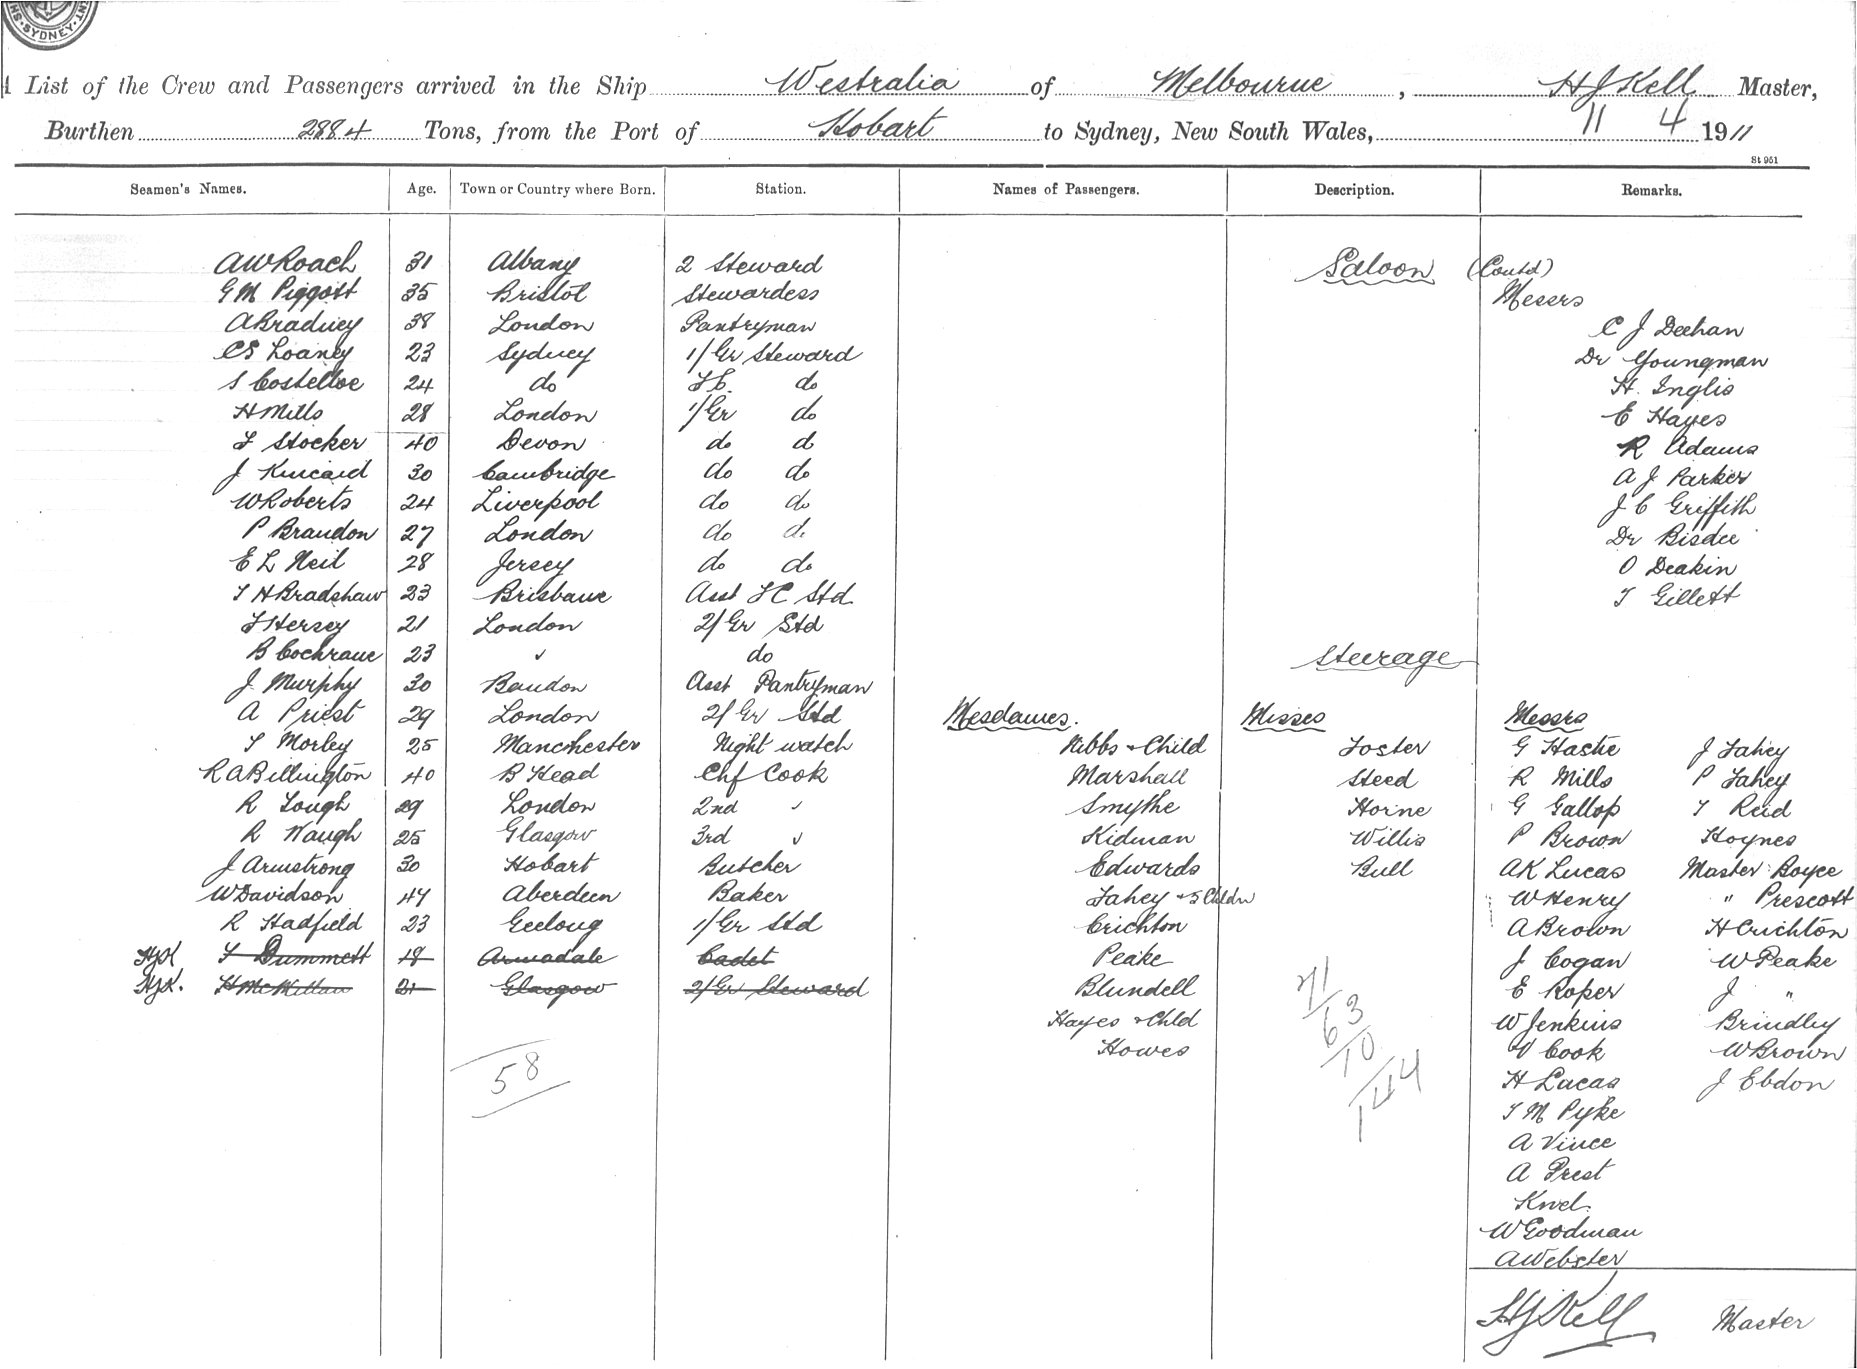 SYDNEY
List of the Crew and Passengers arrived in the Ship Westralia of Melbourne, HJ Kell Master,
Burthen 2884 Tons, from the Port of Hobart to Sydney, New South Wales, 11 4 1911
St 951
Seamen's Names. Age. Town or Country where Born. Station. Names of Passengers. Description. Remarks.
AW Roach 31 Albany 2 Steward Saloon (Contd)
G M Piggott 35 Bristol Stewardess Messrs
A Bradney 38 London Pantryman C J Deehan
CS Loaney 23 Sydney 1/Gr Steward Dr Youngman
S Costelloe 24 do do H. Inglis
H Mills 28 London 1/Gr do E Hayes
F Stocker 40 Devon do d R Adams
J Kincaid 30 Cambridge do do A J Parker
W Roberts 24 Liverpool do do J C Griffith
P Brandon 27 London do do Dr Bisdee
E L Neil 28 Jersey do do O Deakin
T H Bradshaw 23 Brisbane Asst FC Std T Gillett
F Hersey 21 London 2/Gr Std
B Cochrane 23 do Steerage
J. Murphy 30 Bandon Asst Pantryman
A Priest 29 London 2/Gr Std Mesdames. Misses Messrs
T Morley 25 Manchester Night watch Kibbs + Child Foster G Hastie J Fahey
R A Billington 40 B Head Chf Cook Marshall Steed R Mills P Fahey
R Lough 29 London 2nd " Smythe Horne G Gallop T Reid
R Waugh 25 Glasgow 3rd " Kidman Willis P Brown Hoynes
J Armstrong 30 Hobart Butcher Edwards Bull AK Lucas Master Boyce
W Davidson 47 Aberdeen Baker Fahey + 5 Childn W Henry " Prescott
R Hadfield 23 Geelong 1/Gr Std Crichton A Brown H Crichton
HJK F Dummett 18 Armadale Cadet Peake J Cogan W Peake
HJK. H McMillan 21 Glasgow 2/Gr Steward Blundell E Roper J "
Hayes + Chld W Jenkins Brindley
Howes V Cook W Brown
58 71 63 10 144 H Lucas J Ebdon
T M Pyke
A Vince
A Prest
W Goodman
A Webster
HJ Kell Master